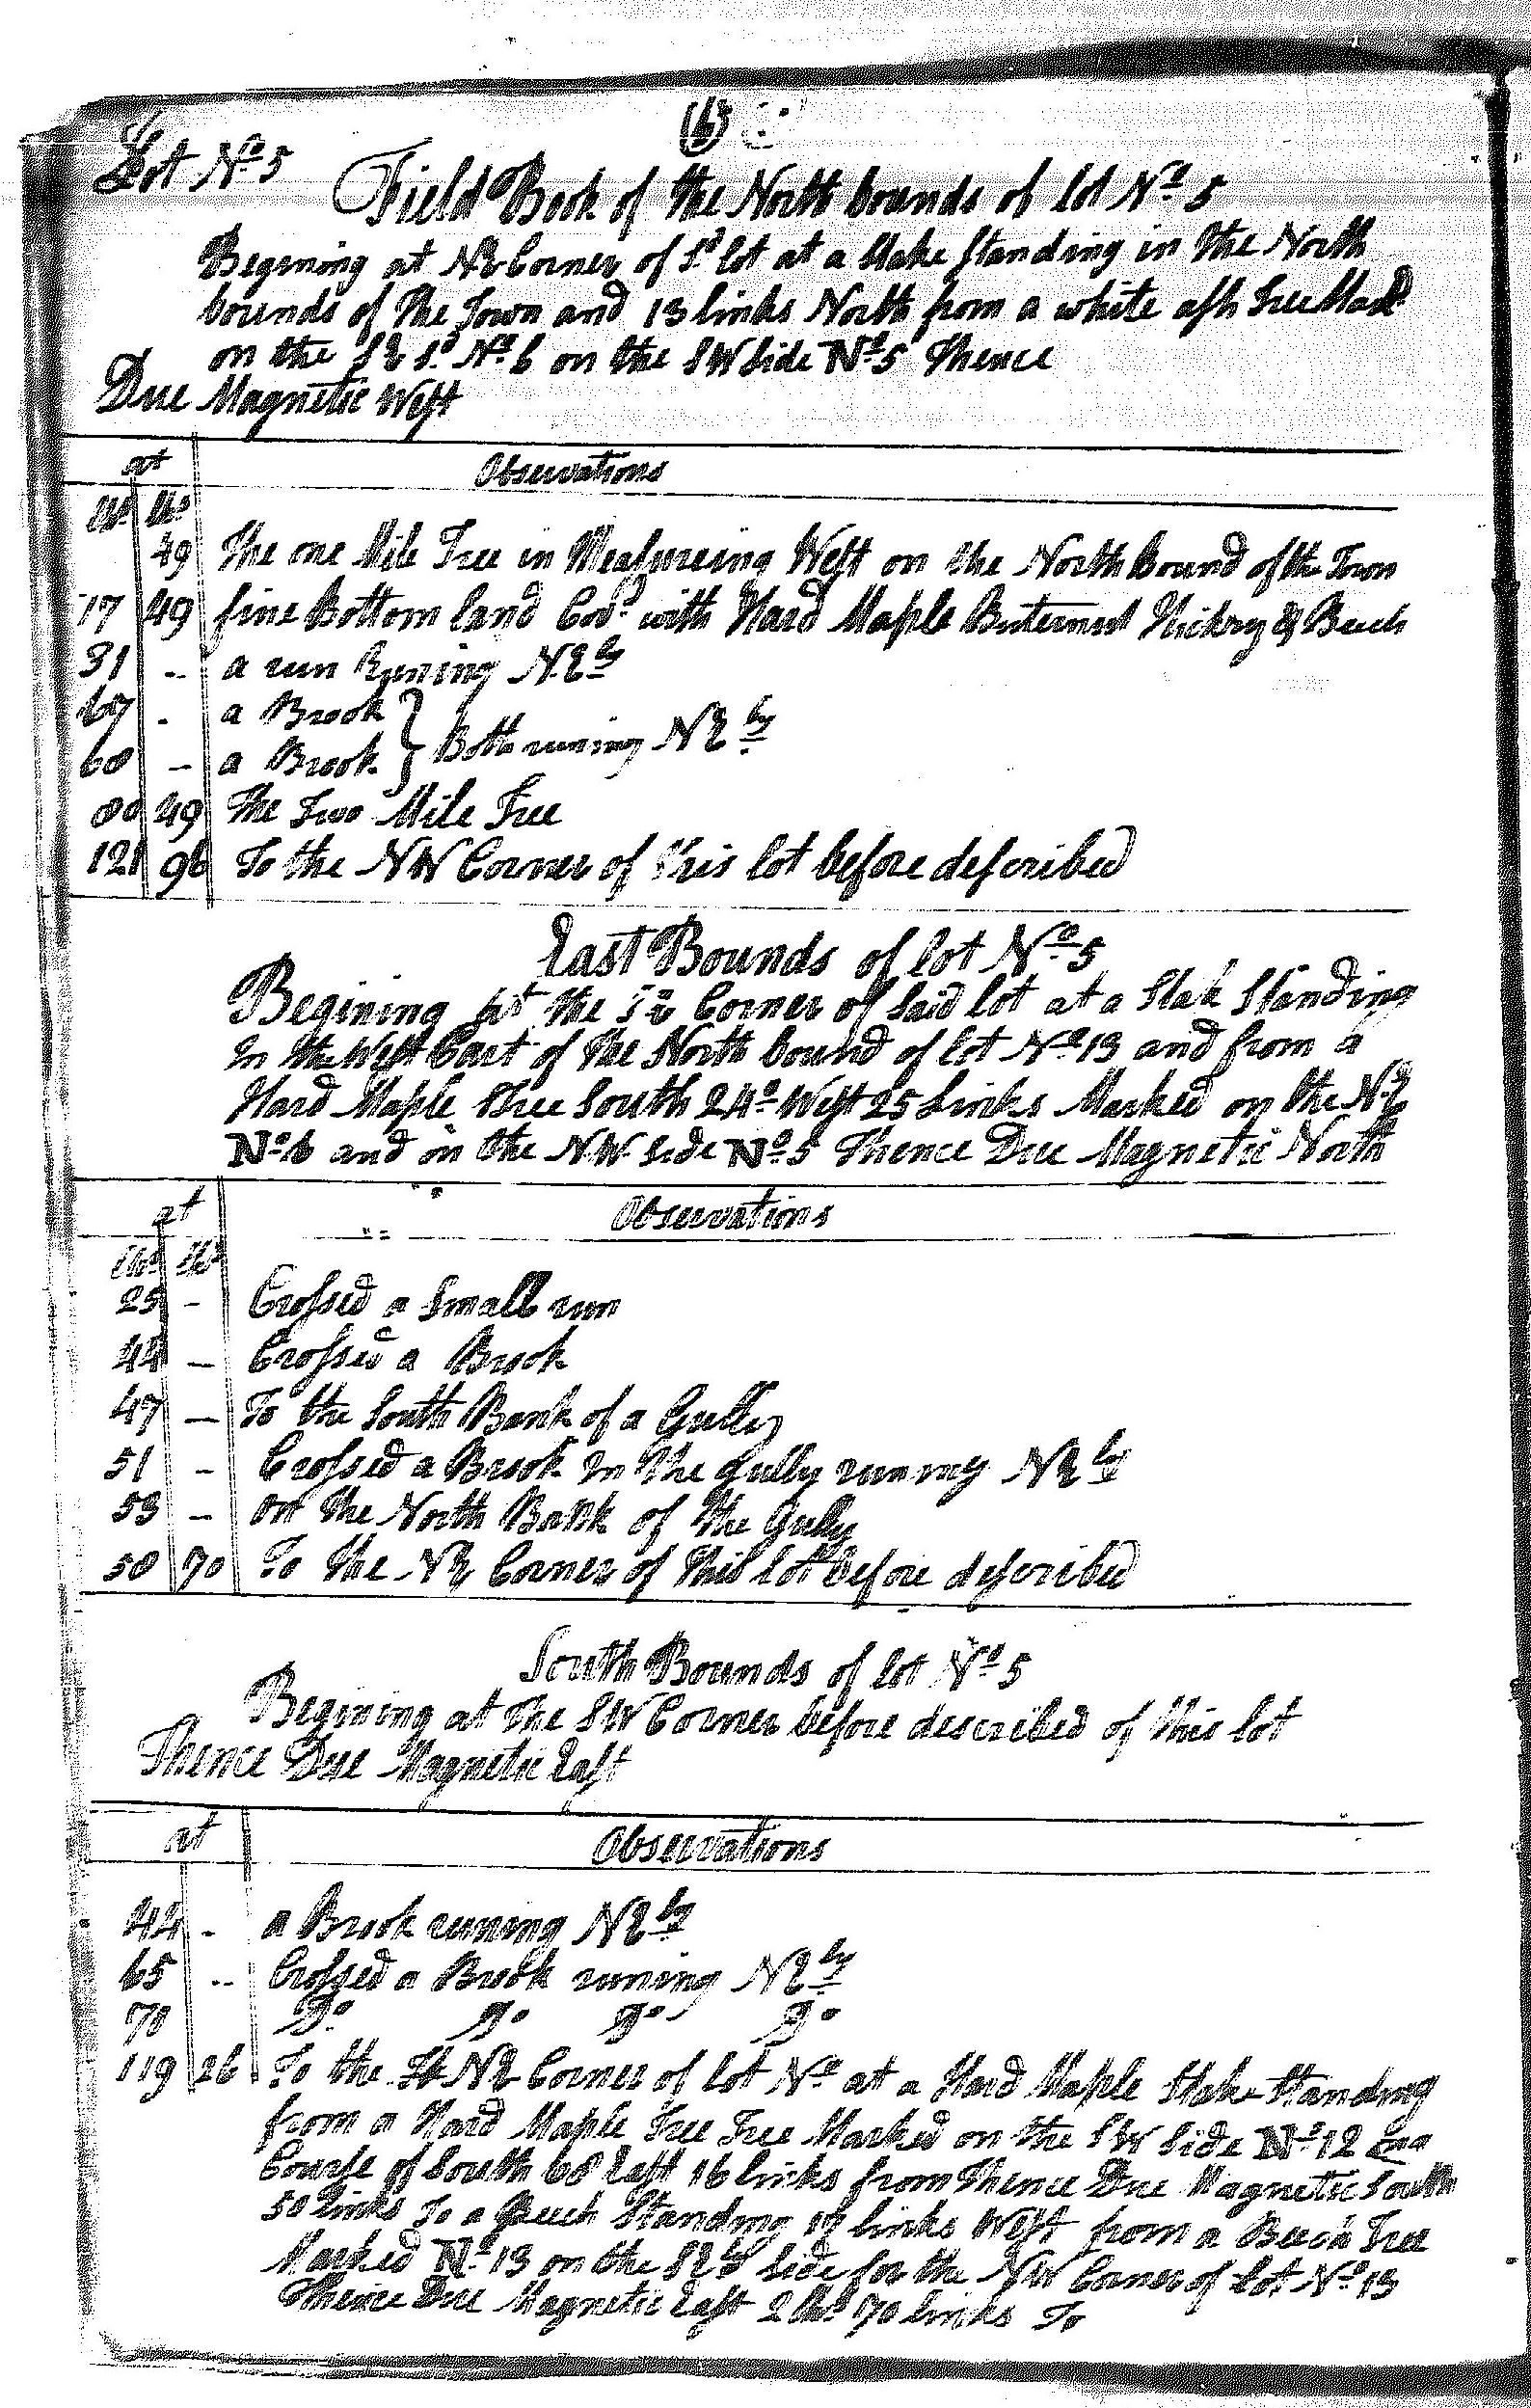 (6)
Lot No 5
Field Book of the North bounds of lot No 5
Begining at NE Corner of Sd lot at a Stake Standing in the North
bounds of the Town and 13 links North from a white ash Tree
on the SE Sd No 6 on the SW Side No 5 Thence
Due Magnetic West
at Observations
Chs lks
49 The one Mile Tree in Measureing West on the North Bound of the Town
17 49 fine Bottom land Covd with Hard Maple Buternut Hickry & Beech
31 - a run Runing NEly
67 - a Brook } Both runing NEly
68 - a Brook }
80 49 The Two Mile Tree
121 96 To the NW Corner of this lot before described
East Bounds of lot No 5
Begining at the SE Corner of Said lot at a Stak Standing
In the West Part of the North bound of lot No 13 and from a
Hard Maple Tree South 24o West 25 Links Marked on the NE
No 6 and on the NW Side No 5 Thence Due Magnetic North
at Observations
Chs lks
25 - Crossed a Small run
44 - Crossed a Brook
47 - To the South Bank of a Gully
51 - Crossed a Brook In the Gully runing NEly
53 - on the North Bank of the Gully
58 70 To the NE Corner of this lot before described
South Bounds of lot No 5
Begining at the SW Corner before described of this lot
Thence Due Magnetic East
at Observations
44 - a Brook runing NEly
65 - Crossed a Brook runing NEly
70 Do Do Do Do
119 26 To the NE Corner of lot No at a Hard Maple Stake Standing
from a Hard Maple Tree Tree Marked on the SW Side No 12 on a
Course of South 68 East 16 links from Thence Due Magnetic South
50 links To a Beech Standing links West from a Beech Tree
Marked No 13 on the SEly Side for the NW Corner of lot No 13
Thence Due Magnetic East 2 Chs 70 links To